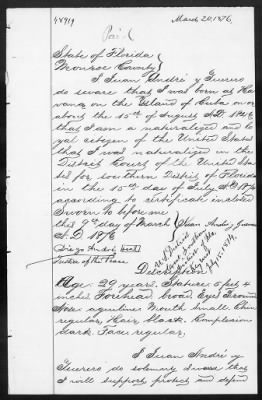 48919
March 20, 1876,
Paid
State of Florida
Monroe County
I Juan André y Guerero
do sweare that I was born at Ha
vana, on the Island of Cuba on or
about the 15th of August A.D. 
that I am a naturalized and lo
yal citizen of the United States
that I was naturalized in the
District Court of the United Sta
tes for southern District of Florida
in the 15th day of July A.D. 
according to certificate inclosed
Sworn to before me
this 9th day of March
A.D. 1876
Juan André y Guerero
Diego André
Justice of the Peace
U.S. District
July 15th
Description
Age: 29 years, Stature 5 feet 4
inches Forehead broad, Eyes Brown
Nose aquiline Mouth Small, Chin
regular, Hair, Black, Complexion
Dark, Face regular,
I Juan André y
Guerero do solemnly sweare that
I will support protect and defend